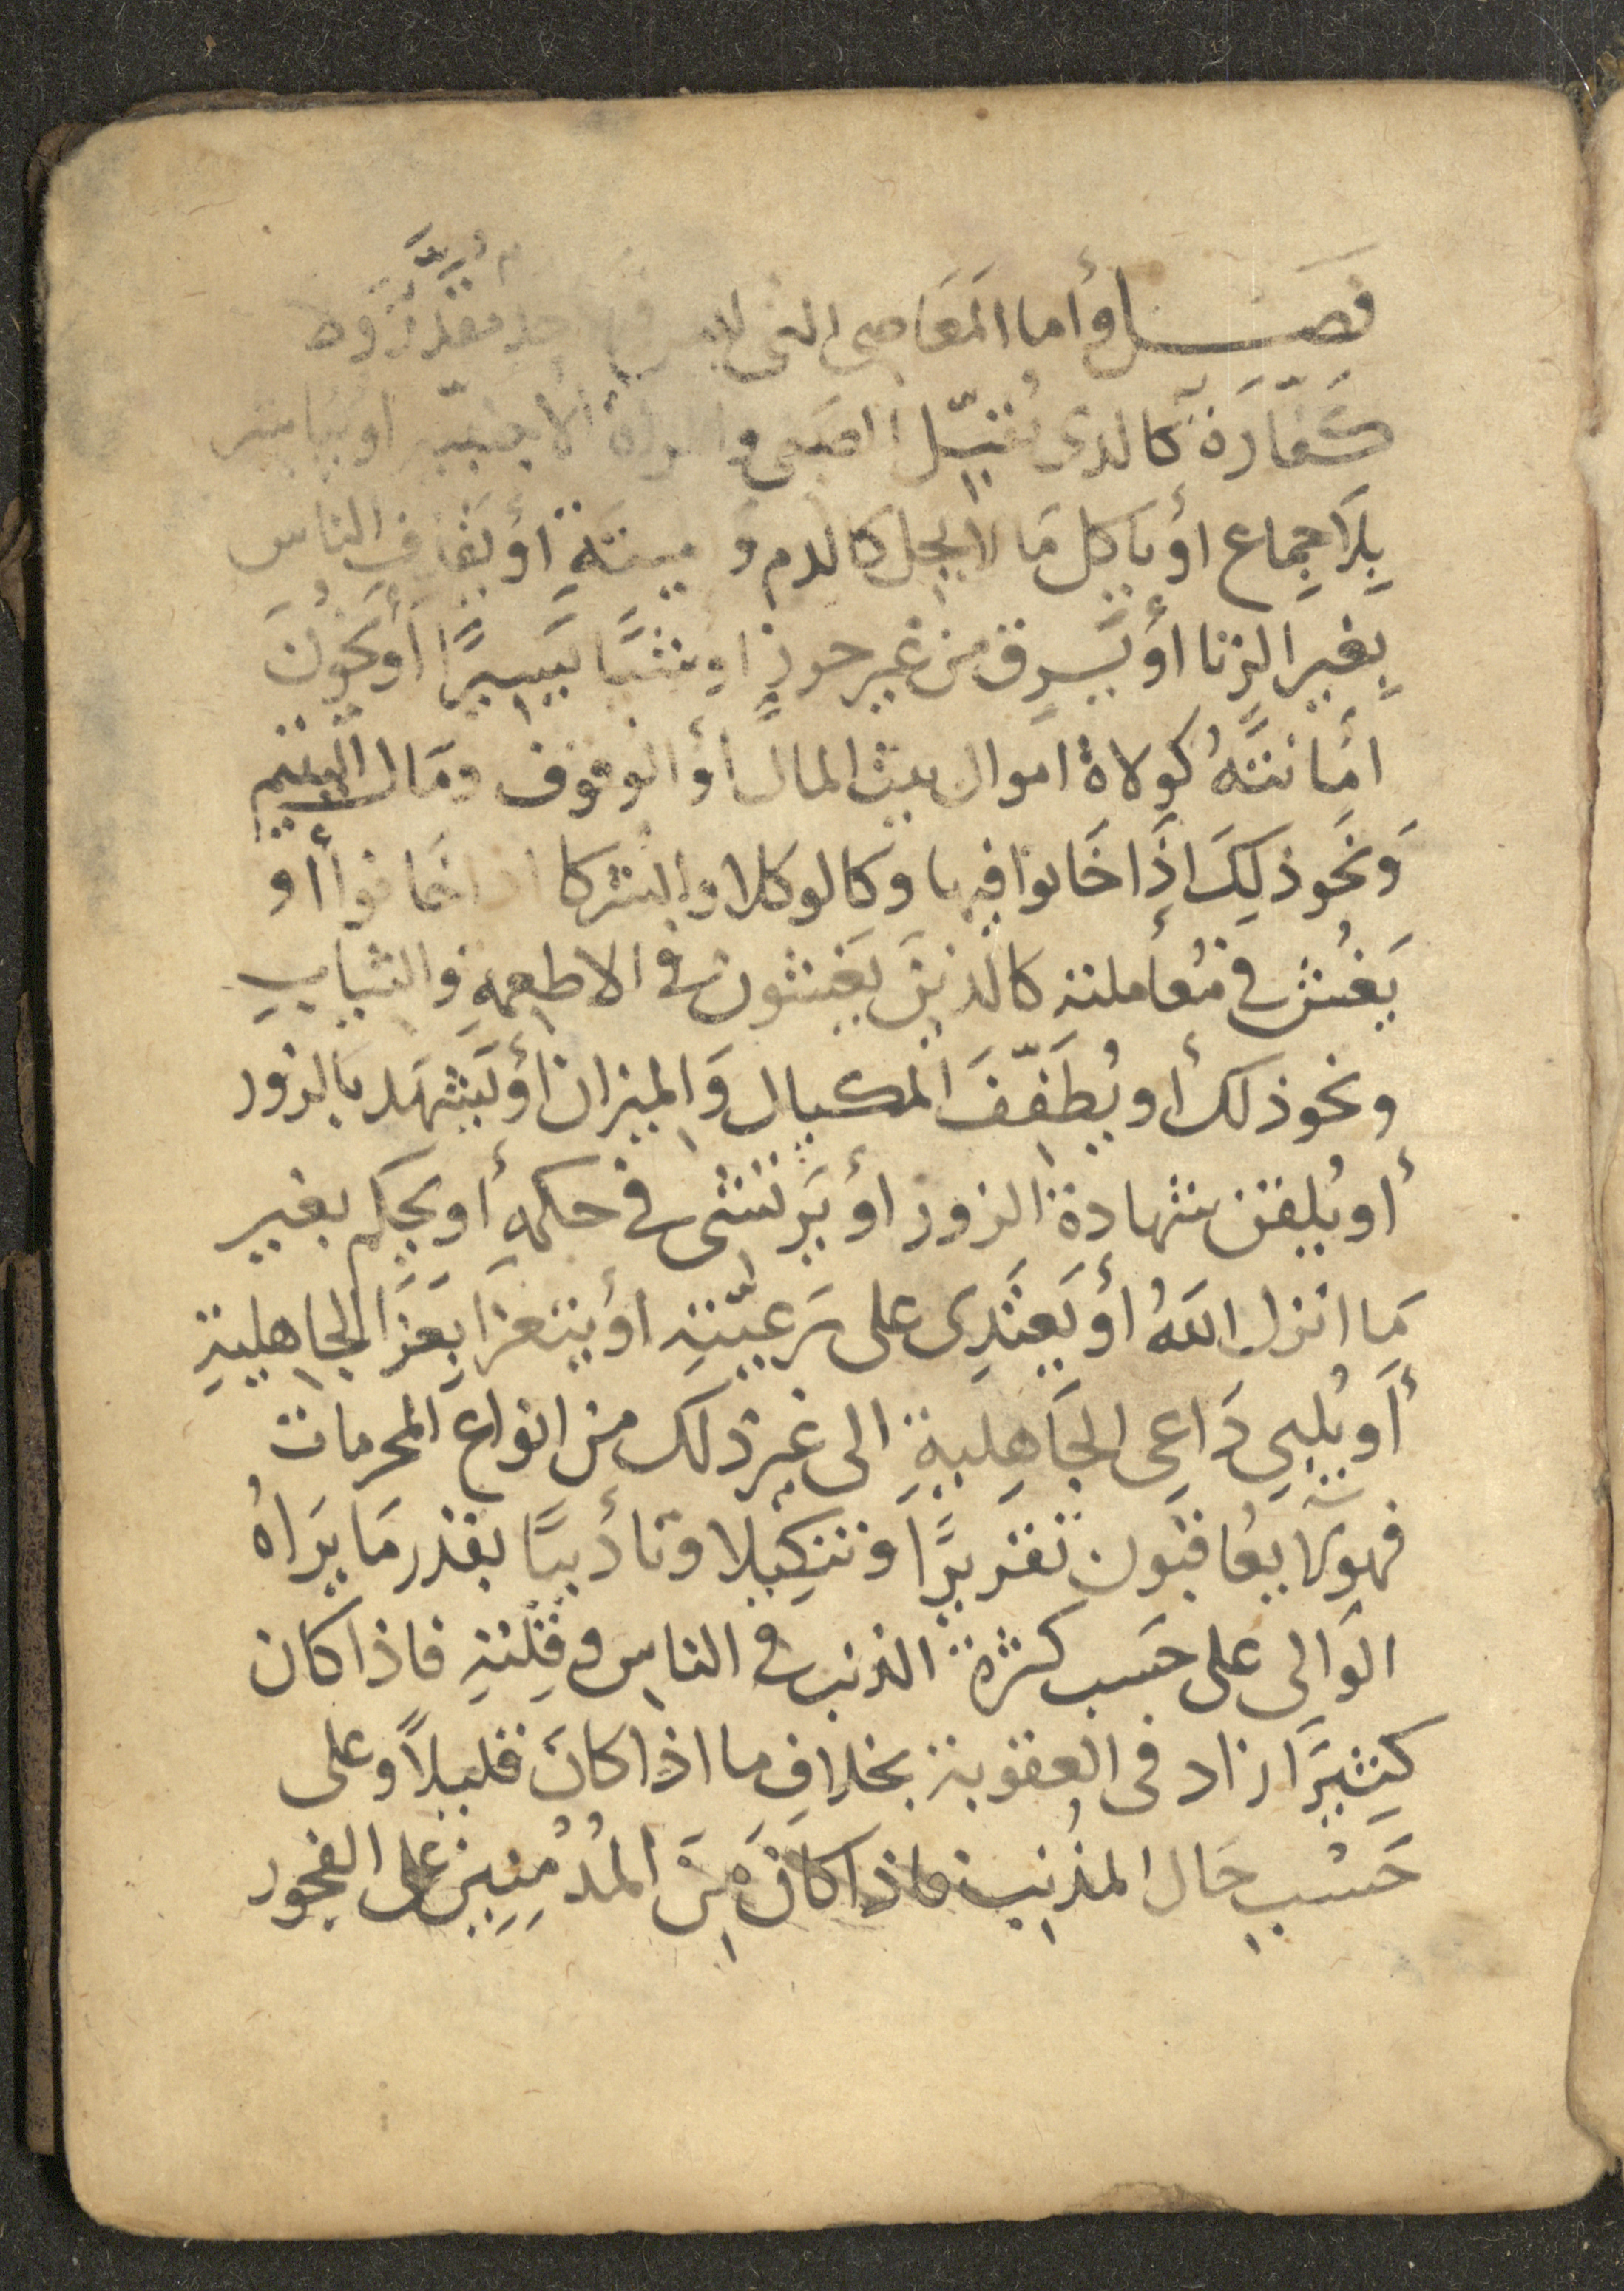 فصل وأما المَعَاصِي التي ليس فيها حد مُقَدَّرٌ وَلا
كَفّارَة كالذى يُقبّل الصبي والمراة الاجنبيّة او يباشر
بِلَا جِماع أو يأكل مَا لا يحل كالدم والميتَةِ أو يَقذِف الناس
بِغير الزِنا أو يَسرق من غير حرزٍ او شَيًا يَسِيرًا أو يَخُونَ
امَانَتَهُ كولاة اموال بيت المال أو الوقوف ومَال اليتيم
وَنَحو ذلِكَ اذَا خَانوا فيها وكالوكلا والشركا اذا خَانوا أو
يَغُش في مُعَاملته كالذينَ يَغشون في الاطعمةِ والثيابِ
ونحو ذلك أو يُطَفّفَ المكيال وَالميزان أو يَشهَد بالزور
أو يُلقن شهادة الزور أو يَرتشى في حكمهِ أو يحكم بغير
مَا انزل اللهُ أو يَعتَدِى على رَعيّتِهِ أو يتعَزَا بِعَزَا الجاهليةِ
أو يُلبي دَاعِى الجَاهِليةِ الى غير ذلك من انواع المحرمات
فهولآ يعُاقبُون تعزيرًا وتنكِيلا وتأديبًا بقدر مَا يَرَاهُ
الوَالى على حَسب كثرة الذنب في الناس وقِلتِهِ فاذا كان
كثيرًا زاد في العقوبة بخلافِ ما اذا كانَ قليلاً وعلى
حَسْبِ حَال المذُنِب فاذا كانَ مِنَ المُدْمِنِين على الفجور